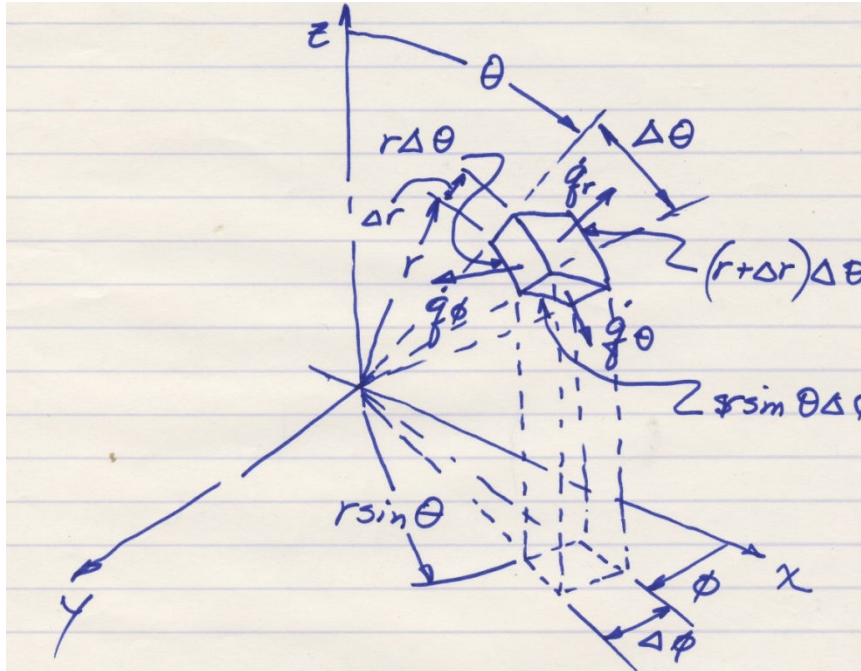 z
θ
Δθ
rΔθ
q̇r
Δr
r
(r+Δr)Δθ
q̇ϕ
q̇θ
rsin θΔϕ
rsin θ
x
ϕ
y
Δϕ